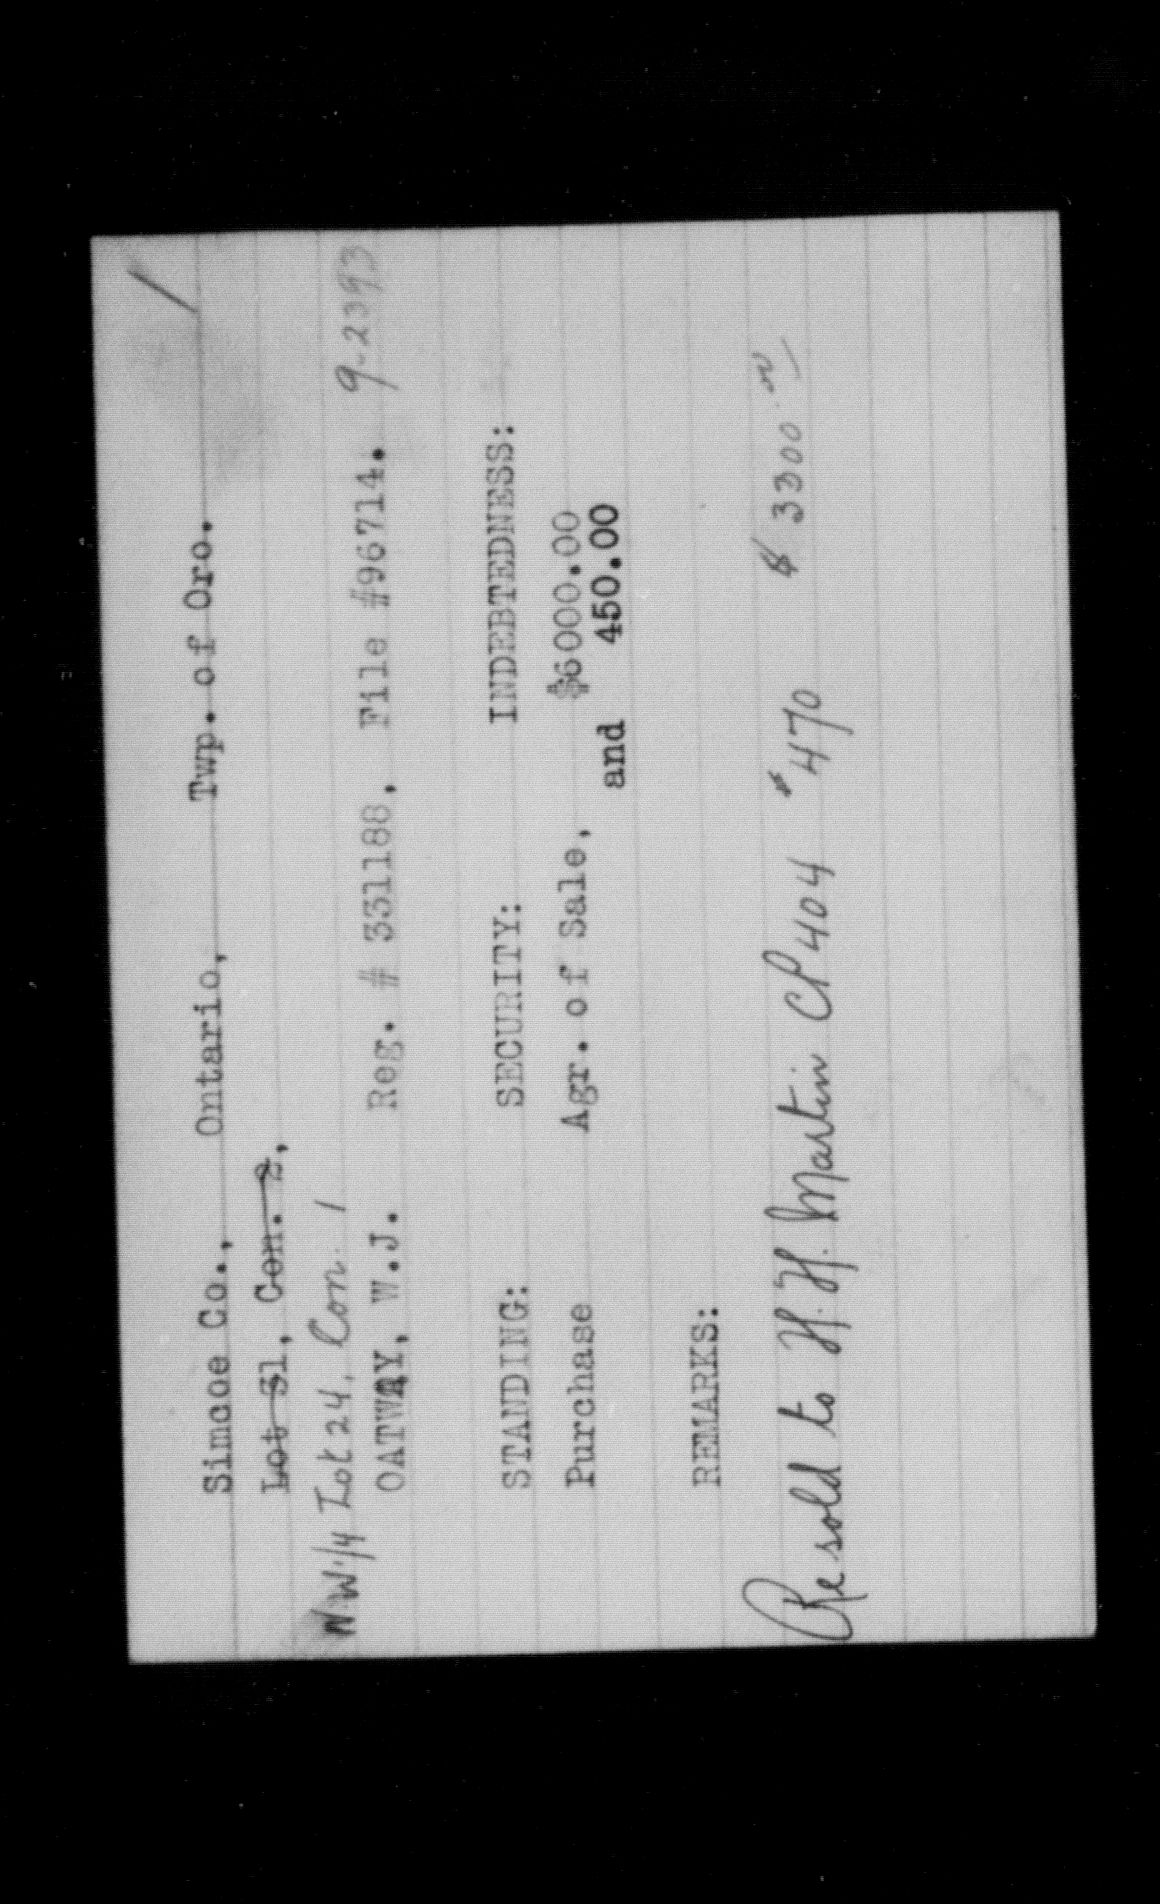 Simcoe Co., Ontario, Twp. of Oro.
Lot 31, Con. 2,
NW 1/4 Lot 24, Con. 1
OATWAY, W.J. Reg. # 331188, File #96714. 9-2393
STANDING: SECURITY: INDEBTEDNESS:
Purchase Agr. of Sale, $6000.00
and 450.00
REMARKS:
Resold to H. H. Martin CP 404 #470 $ 3300.